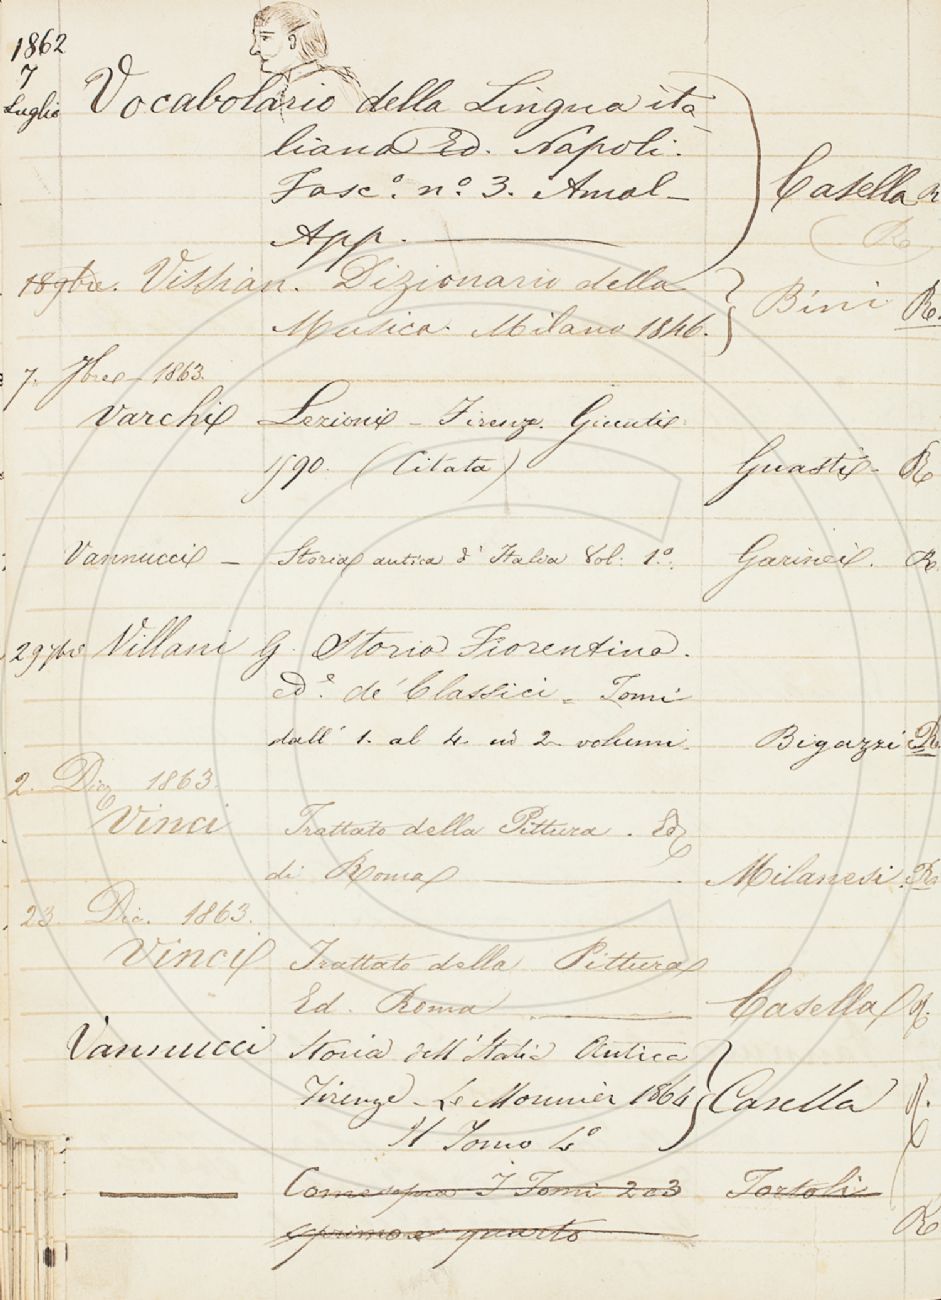 1862
7
Luglio
Vocabolario della Lingua ita-
liana Ed. Napoli.
Fasc.º n.º 3. Amal-
App.
Casella R
R
18 9bre. Vissian. Dizionario della
Musica. Milano 1846.
Bini R.
7. 7bre 1863.
Varchi Lezioni - Firenze Giunti
1590. (Citata)
Guasti - R
Vannucci - Storia antica d'Italia Vol: 1º.
Garinei. R.
29 7bre Villani G. Storia Fiorentina.
Ed.e de' Classici - Tomi
dall' 1. al 4. in 2. volumi.
Bigazzi R.
2. Dic 1863.
Vinci Trattato della Pittura. Ed
di Roma
Milanesi. R
23 Dic. 1863.
Vinci Trattato della Pittura
Ed. Roma
Casella R.
Vannucci Storia dell'Italia Antica
Firenze - Le Monnier 1864
Il Tomo 4º
Casella R.
Come sopra I Tomi 2 e 3 Tortoli
primo e quarto
R